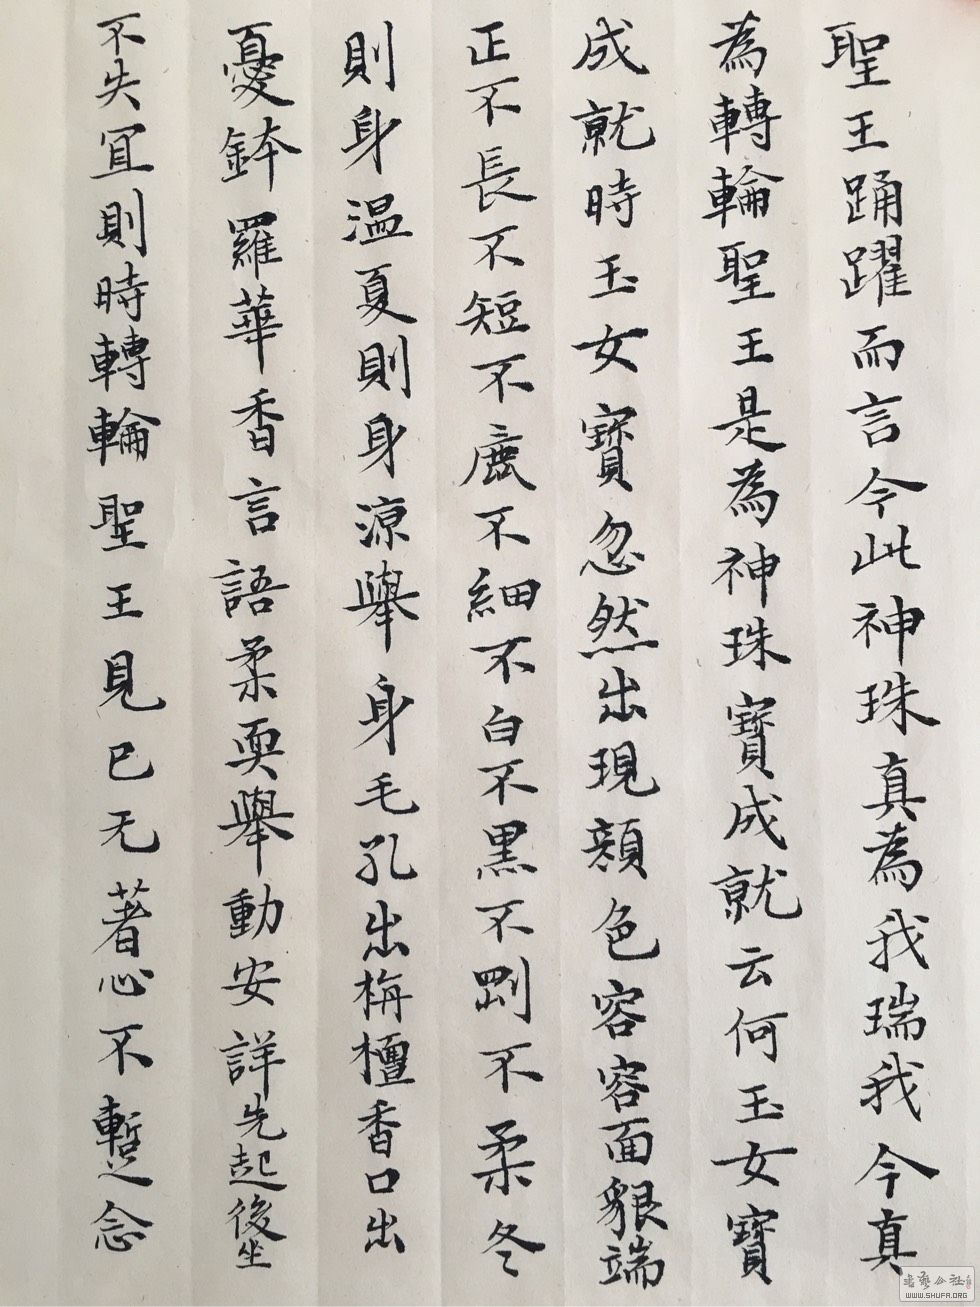 聖王踊躍而言今此神珠真為我瑞我今真
為轉輪聖王是為神珠寶成就云何玉女寶
成就時玉女寶忽然出現顏色容容面貌端
正不長不短不麁不細不白不黑不剛不柔冬
則身溫夏則身涼舉身毛孔出栴檀香口出
憂鉢羅華香言語柔耎舉動安詳先起後坐
不失宜則時轉輪聖王見已无著心不暫念
书艺公社
WWW.SHUFA.ORG